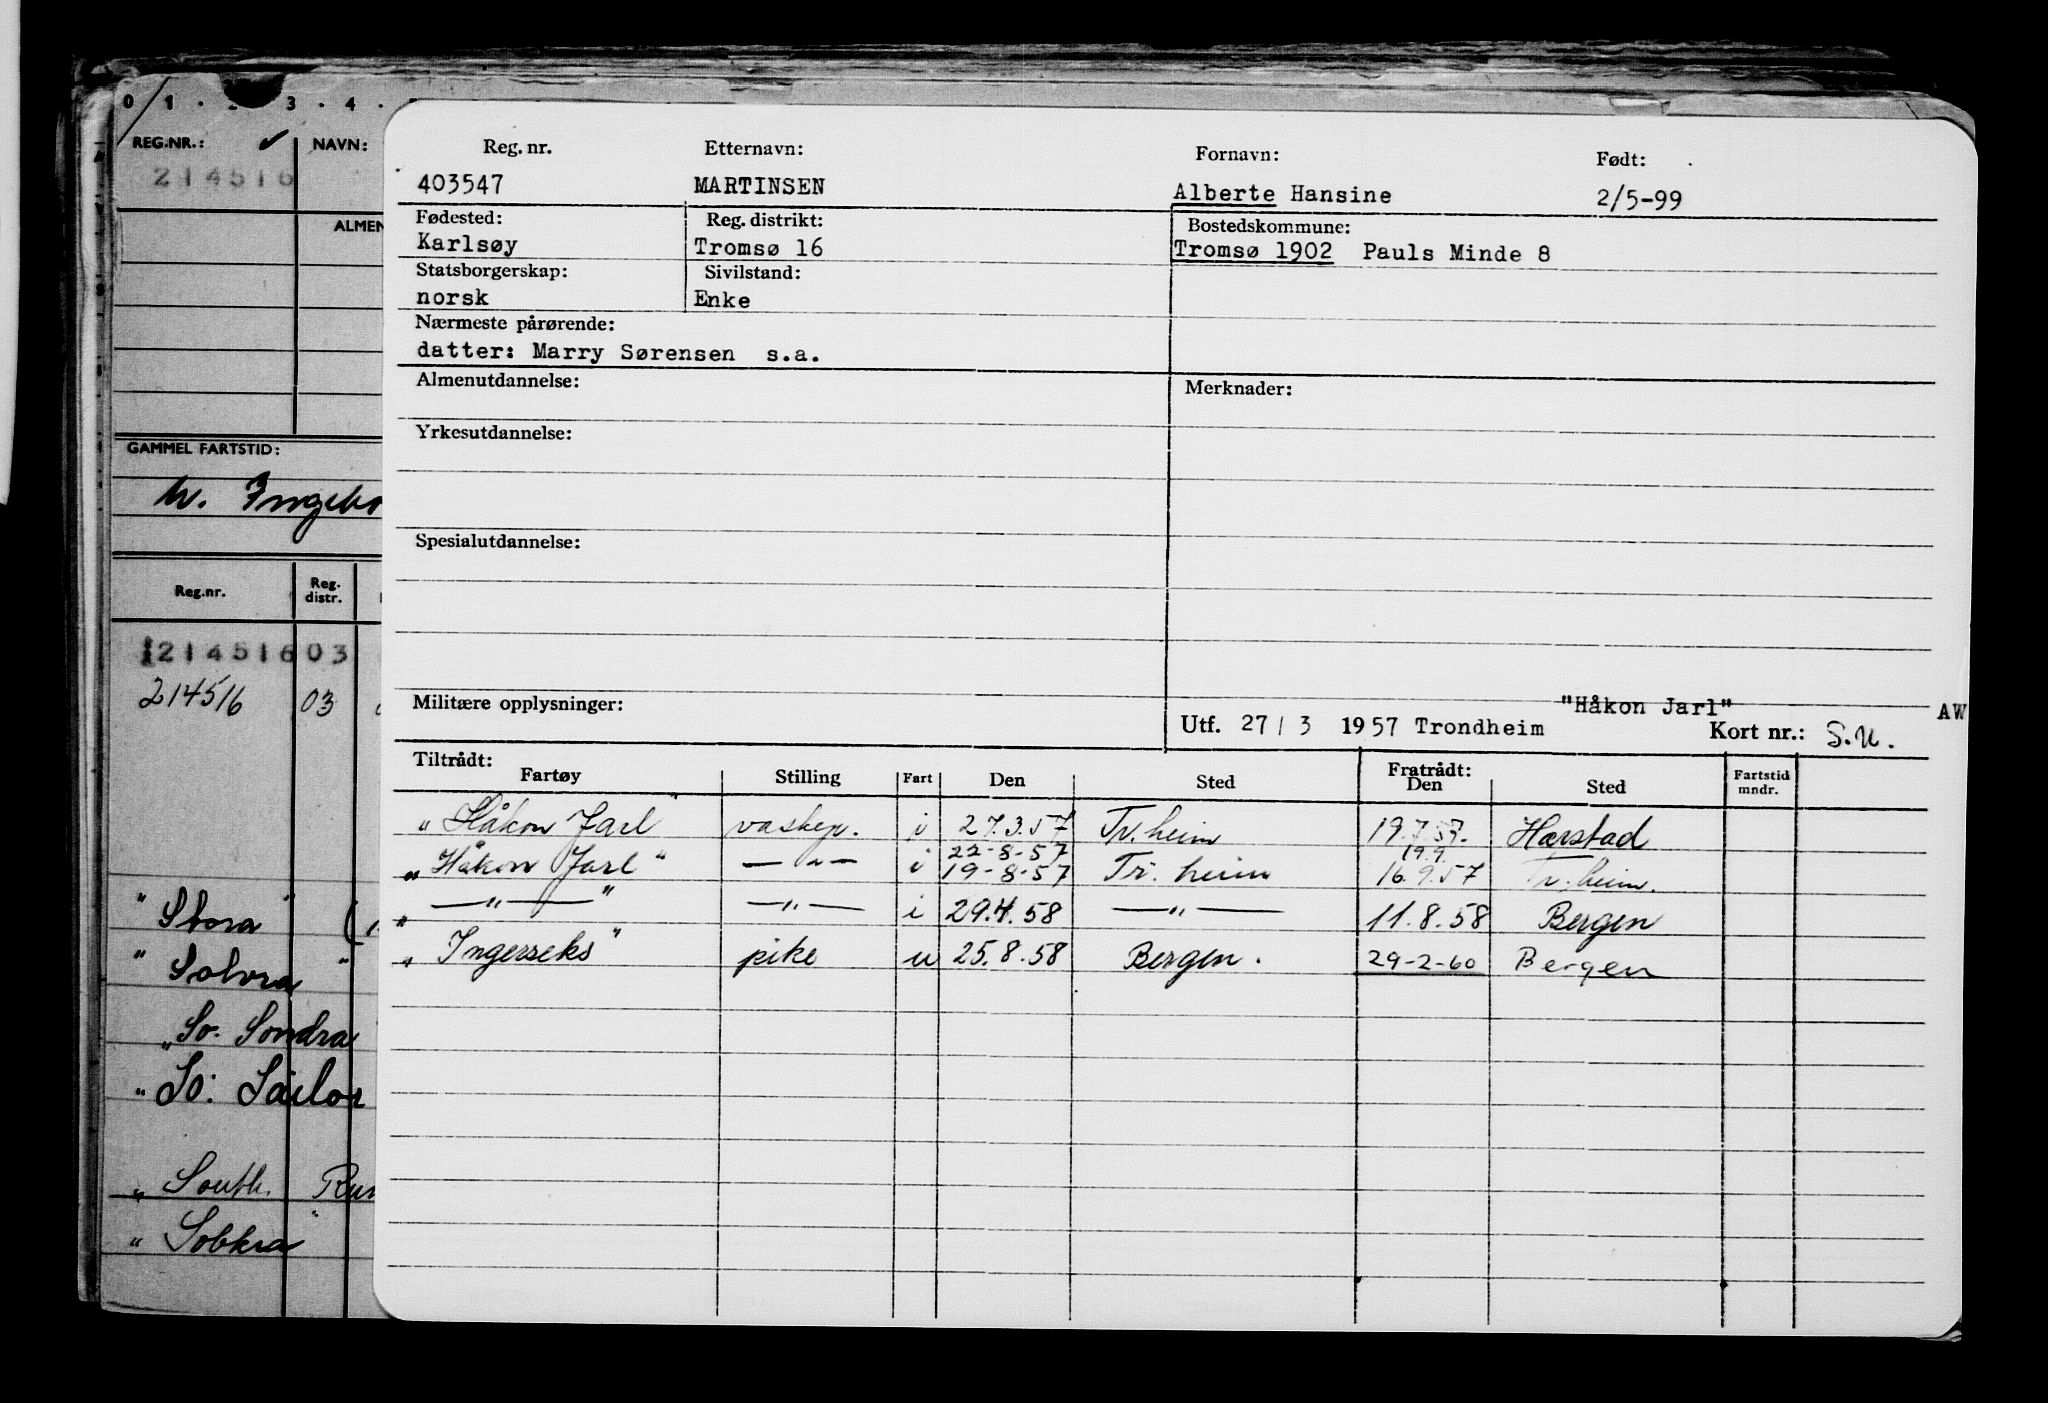 0 1 . 2 . 3 . 4 .
REG.NR.: ✓ NAVN:
214516
ALMEN
GAMMEL FARTSTID:
Reg.nr. Reg. distr.
214516 03
214516 03
" Stora "
" Solvra "
" So. Sondra
" So. Sailor
" South. Run
" Sobkra "
Reg. nr. Etternavn: Fornavn: Født:
403547 MARTINSEN Alberte Hansine 2/5-99
Fødested: Reg. distrikt: Bostedskommune:
Karlsøy Tromsø 16 Tromsø 1902 Pauls Minde 8
Statsborgerskap: Sivilstand:
norsk Enke
Nærmeste pårørende:
datter: Marry Sørensen s.a.
Almenutdannelse: Merknader:
Yrkesutdannelse:
Spesialutdannelse:
Militære opplysninger: "Håkon Jarl" AW
Utf. 27 / 3 1957 Trondheim Kort nr.: S.U.
Tiltrådt: Fratrådt:
Fartøy Stilling Fart Den Sted Den Sted Fartstid mndr.
" Håkon Jarl " vaskep. i 27.3.57 Tr.heim 19.7.57. Harstad
22-8-57 19.9.
" Håkon Jarl " — " — i 19-8-57 Tr. heim 16.9.57 Tr. heim.
" — " — " — " — i 29.4.58 — " — 11.8.58 Bergen
" Ingerseks " pike u 25.8.58 Bergen. 29-2-60 Bergen